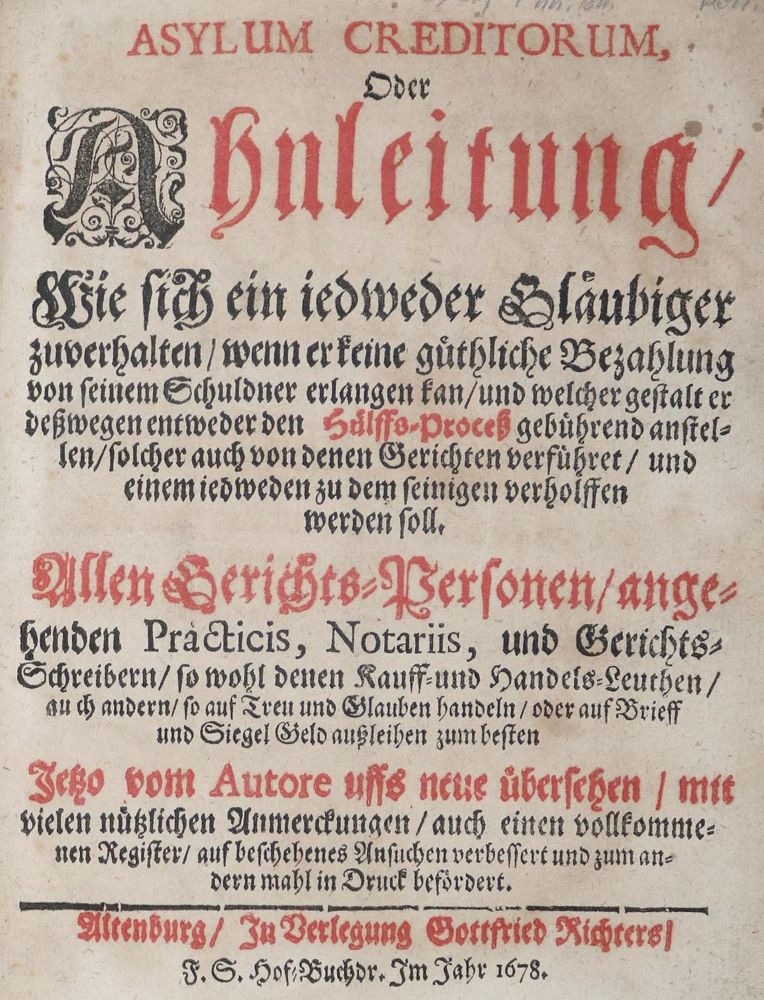 ASYLUM CREDITORUM,
Oder
Ahnleitung/
Wie sich ein iedweder Gläubiger
zuverhalten/ wenn er keine güthliche Bezahlung
von seinem Schuldner erlangen kan/ und welcher gestalt er
deßwegen entweder den Hülffs-Proceß gebührend anstel-
len/ solcher auch von denen Gerichten verführet/ und
einem iedweden zu dem seinigen verholffen
werden soll.
Allen Gerichts-Personen/ ange-
henden Practicis, Notariis, und Gerichts-
Schreibern/ so wohl denen Kauff- und Handels-Leuthen/
auch andern/ so auf Treu und Glauben handeln/ oder auf Brieff
und Siegel Geld außleihen zum besten
Jetzo vom Autore uffs neue übersehen/ mit
vielen nützlichen Anmerckungen/ auch einen vollkomme-
nen Register/ auf beschehenes Ansuchen verbessert und zum an-
dern mahl in Druck befördert.
Altenburg/ In Verlegung Gottfried Richters/
F. S. Hof-Buchdr. Im Jahr 1678.